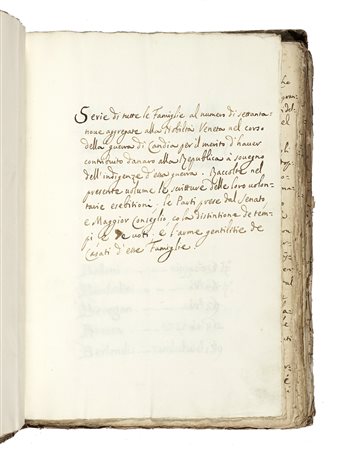 Serie di tutte le Famiglie al numero di settanta-
noue aggregate alla Nobiltà Veneta nel corso
della guerra di Candia per il merito d'hauer
contribuito danaro alla Republica à souegno
dell'indigenze d'essa guerra. Raccolte nel
presente volume le scritture delle loro volon-
tarie esebitioni. le Parti prese dal Senato,
e Maggior Conseglio, co la distintione de tem-
pi e de voti, e l'arme gentilitie de
Casati d'esse Famiglie.